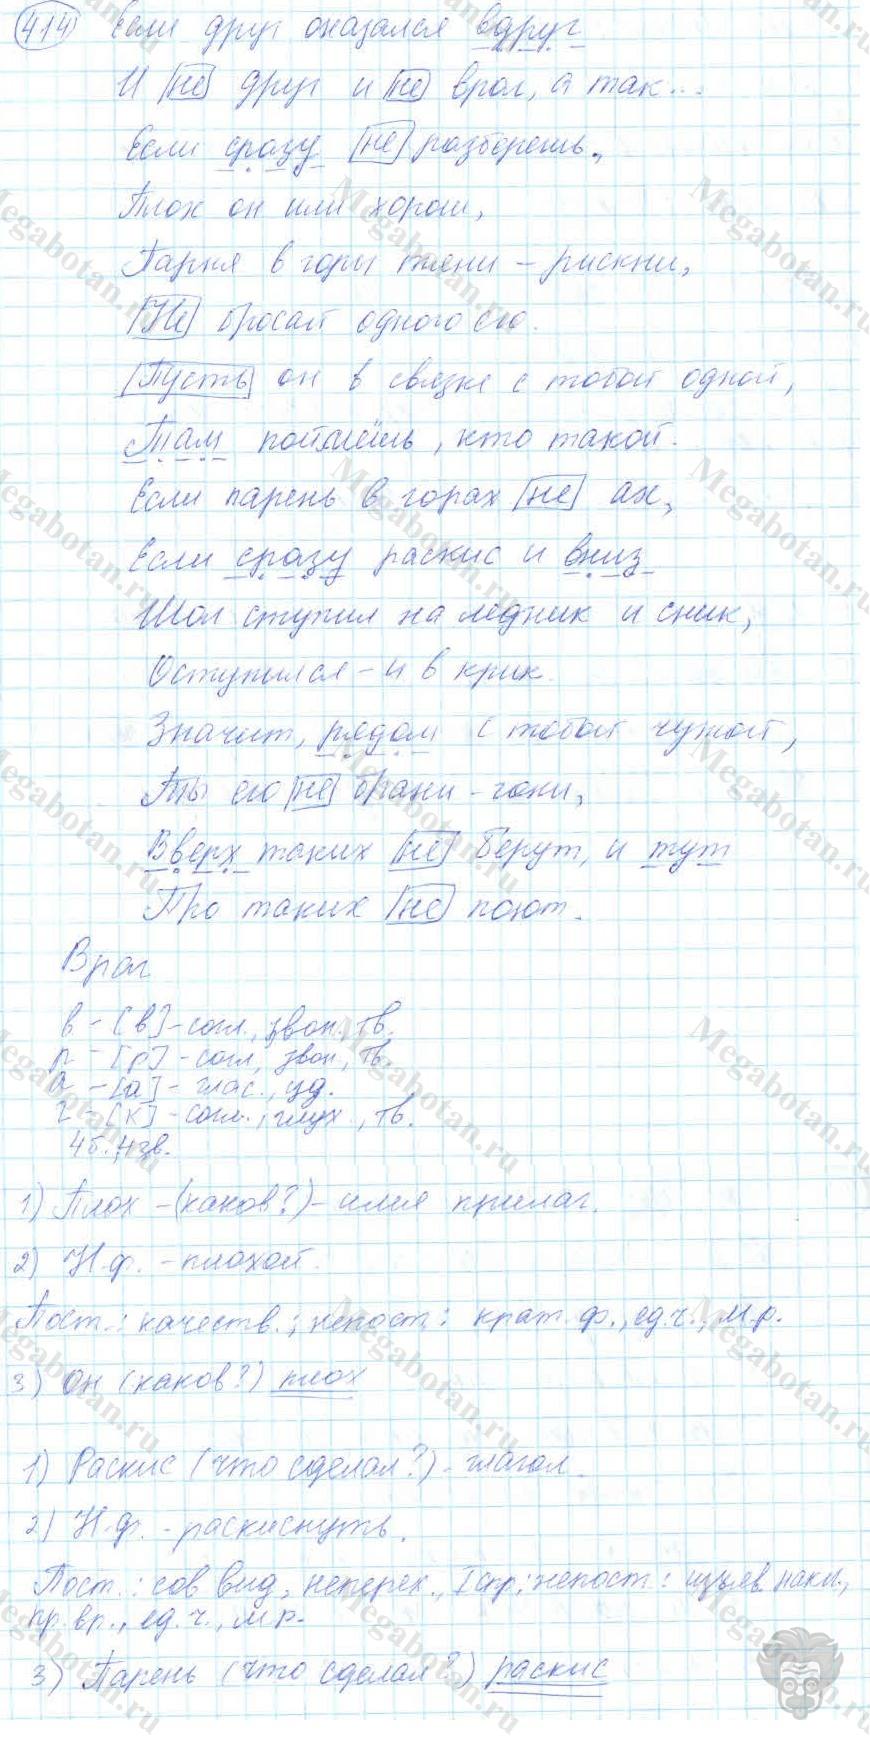 414) Если друг оказался вдруг
И не друг и не враг, а так...
Если сразу не разберешь,
Плох он или хорош,
Парня в горы тяни - рискни,
Не бросай одного его.
Пусть он в связке с тобой одной,
Там поймёшь, кто такой.
Если парень в горах не ах,
Если сразу раскис и вниз
Шаг ступил на ледник и сник,
Оступился - и в крик.
Значит, рядом с тобой чужой,
Ты его не брани - гони,
Вверх таких не берут, и тут
Про таких не поют.
Враг
в - [в] - согл., звон., тв.
р - [р] - согл., звон., тв.
а - [а] - глас., уд.
г - [к] - согл., глух., тв.
4б., 4зв.
1) Плох - (каков?) - имя прилаг.
2) Н.ф. - плохой.
Пост.: качеств.; непост.: крат. ф., ед.ч., м.р.
3) Он (каков?) плох
1) Раскис (что сделал?) - глагол.
2) Н.ф. - раскиснуть.
Пост.: сов вид, неперех., I спр; непост.: изъяв. накл.,
пр. вр., ед. ч., м.р.
3) Парень (что сделал?) раскис
Megabotan.ru